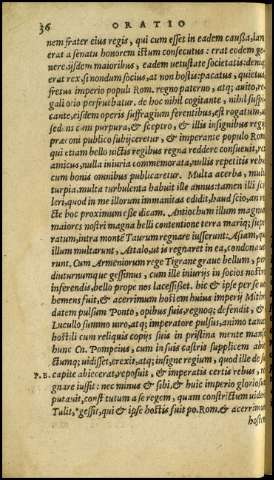 36 ORATIO
nem frater eius regis, qui cum esset in eadem caussa, iam
erat a senatu honorem istum consecutus: erat eodem ge-
nere, iisdem maioribus, eadem uetustate societatis: deniq;
erat rex, si nondum socius, at non hostis: pacatus, quietus,
fretus imperio populi Rom. regno paterno, atq; auito, re-
gali otio perfruebatur. de hoc nihil cogitante, nihil suspi-
cante, eisdem operis suffragium ferentibus, est rogatum, ut
sedens cum purpura, & sceptro, & illis insignibus regijs
præconi publico subijceretur, & imperante populo Rom.
qui etiam bello uictis regibus regna reddere consueuit, rex
amicus, nulla iniuria commemorata, nullis repetitis rebus,
cum bonis omnibus publicaretur. Multa acerba, multa
turpia, multa turbulenta habuit ille annus: tamen illi sce-
leri, quod in me illorum immanitas edidit, haud scio, an re-
cte hoc proximum esse dicam. Antiochum illum magnum
maiores nostri magna belli contentione terra mariq; supe-
ratum, intra montē Taurum regnare iusserunt: Asiam, qua
illum multarunt, Attalo, ut is regnaret in ea, condonaue-
runt. Cum Armeniorum rege Tigrane graue bellum, per-
diuturnumque gessimus, cum ille iniurijs in socios nostros
inferendis, bello prope nos lacessisset. hic & ipse per se ue-
hemens fuit, & acerrimum hostem huius imperij Mithri-
datem pulsum Ponto, opibus suis, regnoq; defendit, & a
Lucullo summo uiro, atq; imperatore pulsus, animo tamen
hostili cum reliquis copijs suis in pristina mente mansit:
hunc Cn. Pompeius, cum in suis castris supplicem abie-
ctum; uidisset, erexit, atq; insigne regium, quod ille de suo
P.B. capite abiecerat, reposuit, & imperatis certis rebus, re-
gnare iussit: nec minus & sibi, & huic imperio gloriosum
putauit, constitutum a se regem, quam constrictum uideri.
Tulit, gessit, qui & ipse hostis fuit po. Rom. & acerrimum
hostem